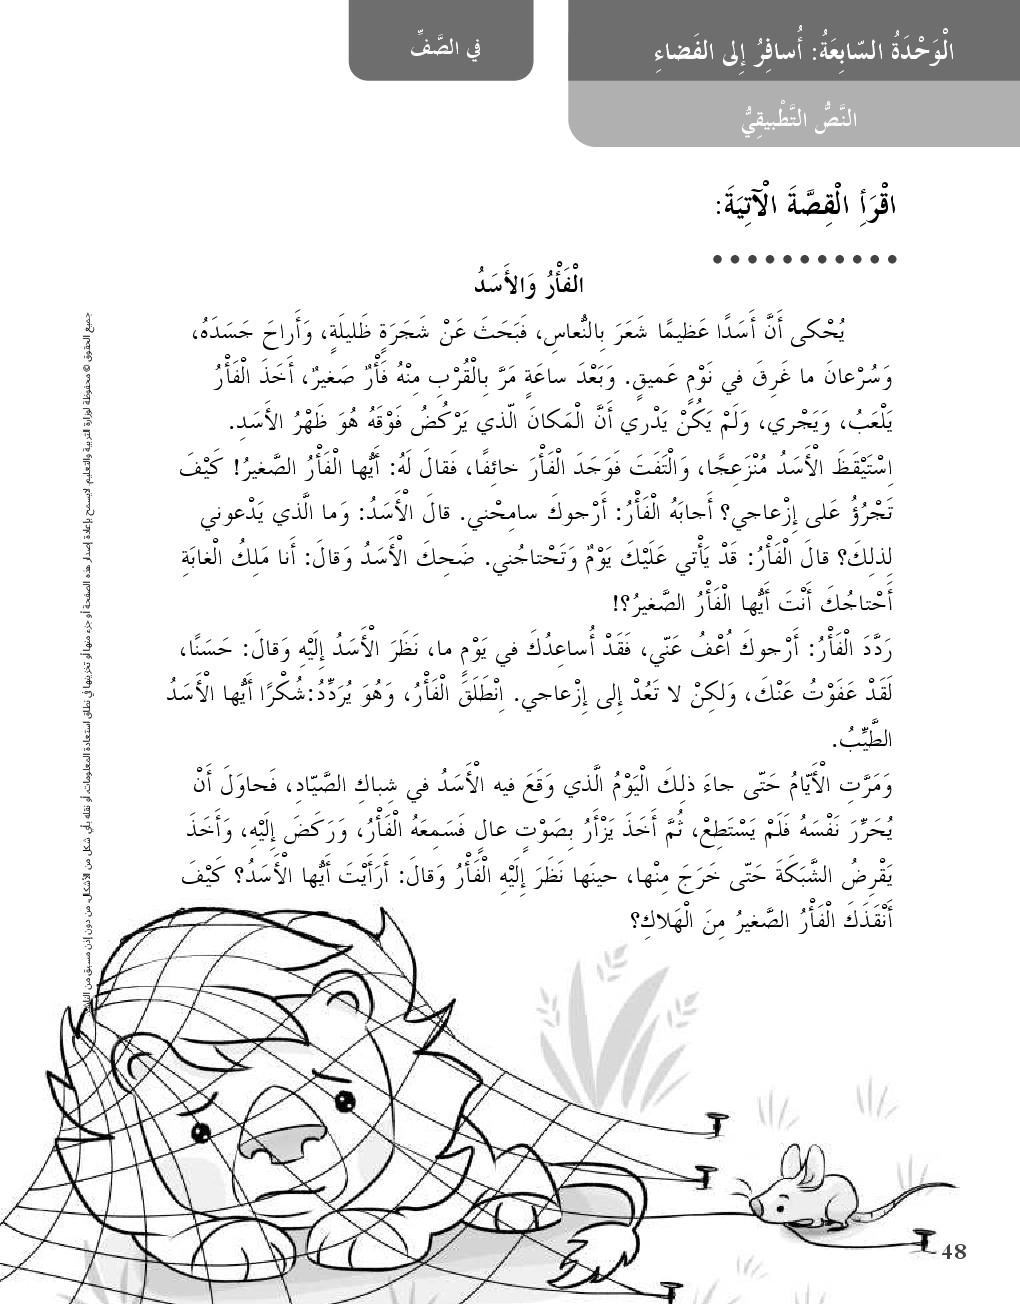 الْوَحْدَةُ السّابِعَةُ: أُسافِرُ إِلى الفَضاءِ
في الصَّفِّ
النَّصُّ التَّطْبيقِيُّ
اقْرَأِ الْقِصَّةَ الْآتِيَةَ:
الْفَأْرُ وَالأَسَدُ
يُحْكى أَنَّ أَسَدًا عَظيمًا شَعَرَ بِالنُّعاسِ، فَبَحَثَ عَنْ شَجَرَةٍ ظَليلَةٍ، وَأَراحَ جَسَدَهُ،
وَسُرْعانَ ما غَرِقَ في نَوْمٍ عَميقٍ. وَبَعْدَ ساعَةٍ مَرَّ بِالْقُرْبِ مِنْهُ فَأْرٌ صَغيرٌ، أَخَذَ الْفَأْرُ
يَلْعَبُ، وَيَجْري، وَلَمْ يَكُنْ يَدْري أَنَّ الْمَكانَ الّذي يَرْكُضُ فَوْقَهُ هُوَ ظَهْرُ الأَسَدِ.
اِسْتَيْقَظَ الْأَسَدُ مُنْزَعِجًا، وَالْتَفَتَ فَوَجَدَ الْفَأْرَ خائِفًا، فَقالَ لَهُ: أَيُّها الْفَأْرُ الصَّغيرُ! كَيْفَ
تَجْرُؤُ عَلى إِزْعاجي؟ أَجابَهُ الْفَأْرُ: أَرْجوكَ سامِحْني. قالَ الْأَسَدُ: وَما الَّذي يَدْعوني
لِذلِكَ؟ قالَ الْفَأْرُ: قَدْ يَأْتي عَلَيْكَ يَوْمٌ وَتَحْتاجُني. ضَحِكَ الْأَسَدُ وَقالَ: أَنا مَلِكُ الْغابَةِ
أَحْتاجُكَ أَنْتَ أَيُّها الْفَأْرُ الصَّغيرُ؟!
رَدَّدَ الْفَأْرُ: أَرْجوكَ اُعْفُ عَنّي، فَقَدْ أُساعِدُكَ في يَوْمٍ ما، نَظَرَ الْأَسَدُ إِلَيْهِ وَقالَ: حَسَنًا،
لَقَدْ عَفَوْتُ عَنْكَ، وَلكِنْ لا تَعُدْ إِلى إِزْعاجي. اِنْطَلَقَ الْفَأْرُ، وَهُوَ يُرَدِّدُ:شُكْرًا أَيُّها الْأَسَدُ
الطَّيِّبُ.
وَمَرَّتِ الْأَيّامُ حَتّى جاءَ ذلِكَ الْيَوْمُ الَّذي وَقَعَ فيه الْأَسَدُ في شِباكِ الصَّيّادِ، فَحاوَلَ أَنْ
يُحَرِّرَ نَفْسَهُ فَلَمْ يَسْتَطِعْ، ثُمَّ أَخَذَ يَزْأَرُ بِصَوْتٍ عالٍ فَسَمِعَهُ الْفَأْرُ، وَرَكَضَ إِلَيْهِ، وَأَخَذَ
يَقْرِضُ الشَّبَكَةَ حَتّى خَرَجَ مِنْها، حينَها نَظَرَ إِلَيْهِ الْفَأْرُ وَقالَ: أَرَأَيْتَ أَيُّها الْأَسَدُ؟ كَيْفَ
أَنْقَذَكَ الْفَأْرُ الصَّغيرُ مِنَ الْهَلاكِ؟
جميع الحقوق © محفوظة لوزارة التربية والتعليم. لايسمح بإعادة إصدار هذه الصفحة أو جزء منها أو تخزينها في نطاق استعادة المعلومات، أو نقله بأي شكل من الأشكال، من دون إذن مسبق من
48